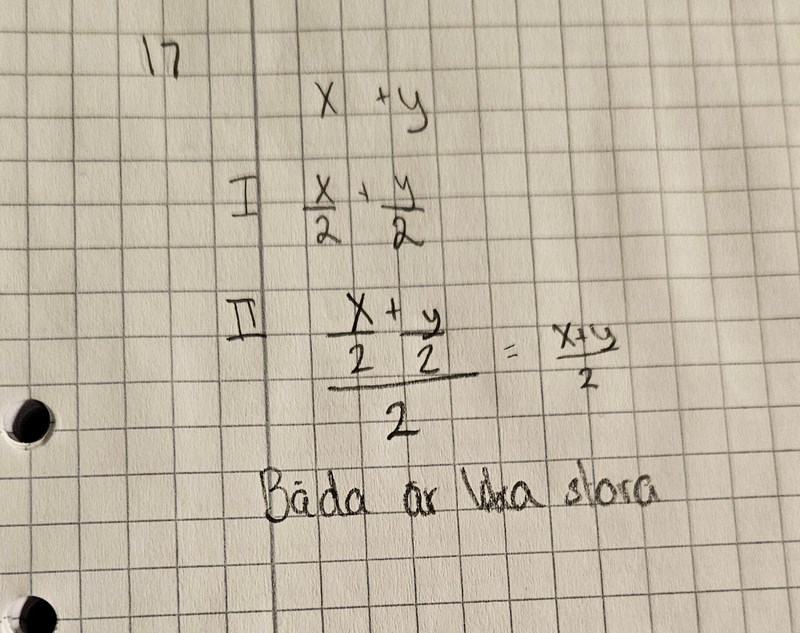 17
x + y
I x/2 + y/2
II (x/2 + y/2)/2 = (x+y)/2
Båda är lika stora